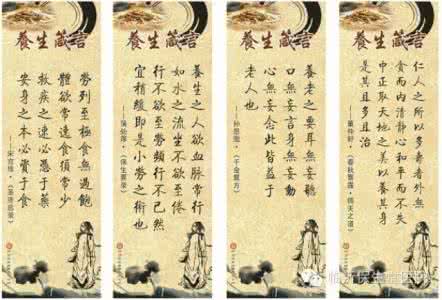 養生箴言
勞列至極食無過飽
體欲常逺食須常少
救疾之速必憑于藥
安身之本必資于食
養生箴言
養生之人欲血脉常行
如水之流坐不欲至倦
行不欲至勞頻行不已然
宜稍緩即是小勞之術也
——蒲处贯·《保生要录》
養生箴言
養老之要耳無妄聽
口無妄言身無妄動
心無妄念此皆益于
老人也
——孙思邈·《千金翼方》
養生箴言
仁人之所以多壽者外無
貪而内清静心和平而不失
中正取天地之美以養其身
是其且多且治
——董仲舒·《春秋繁露·循天之道》
临沂保生堂国医